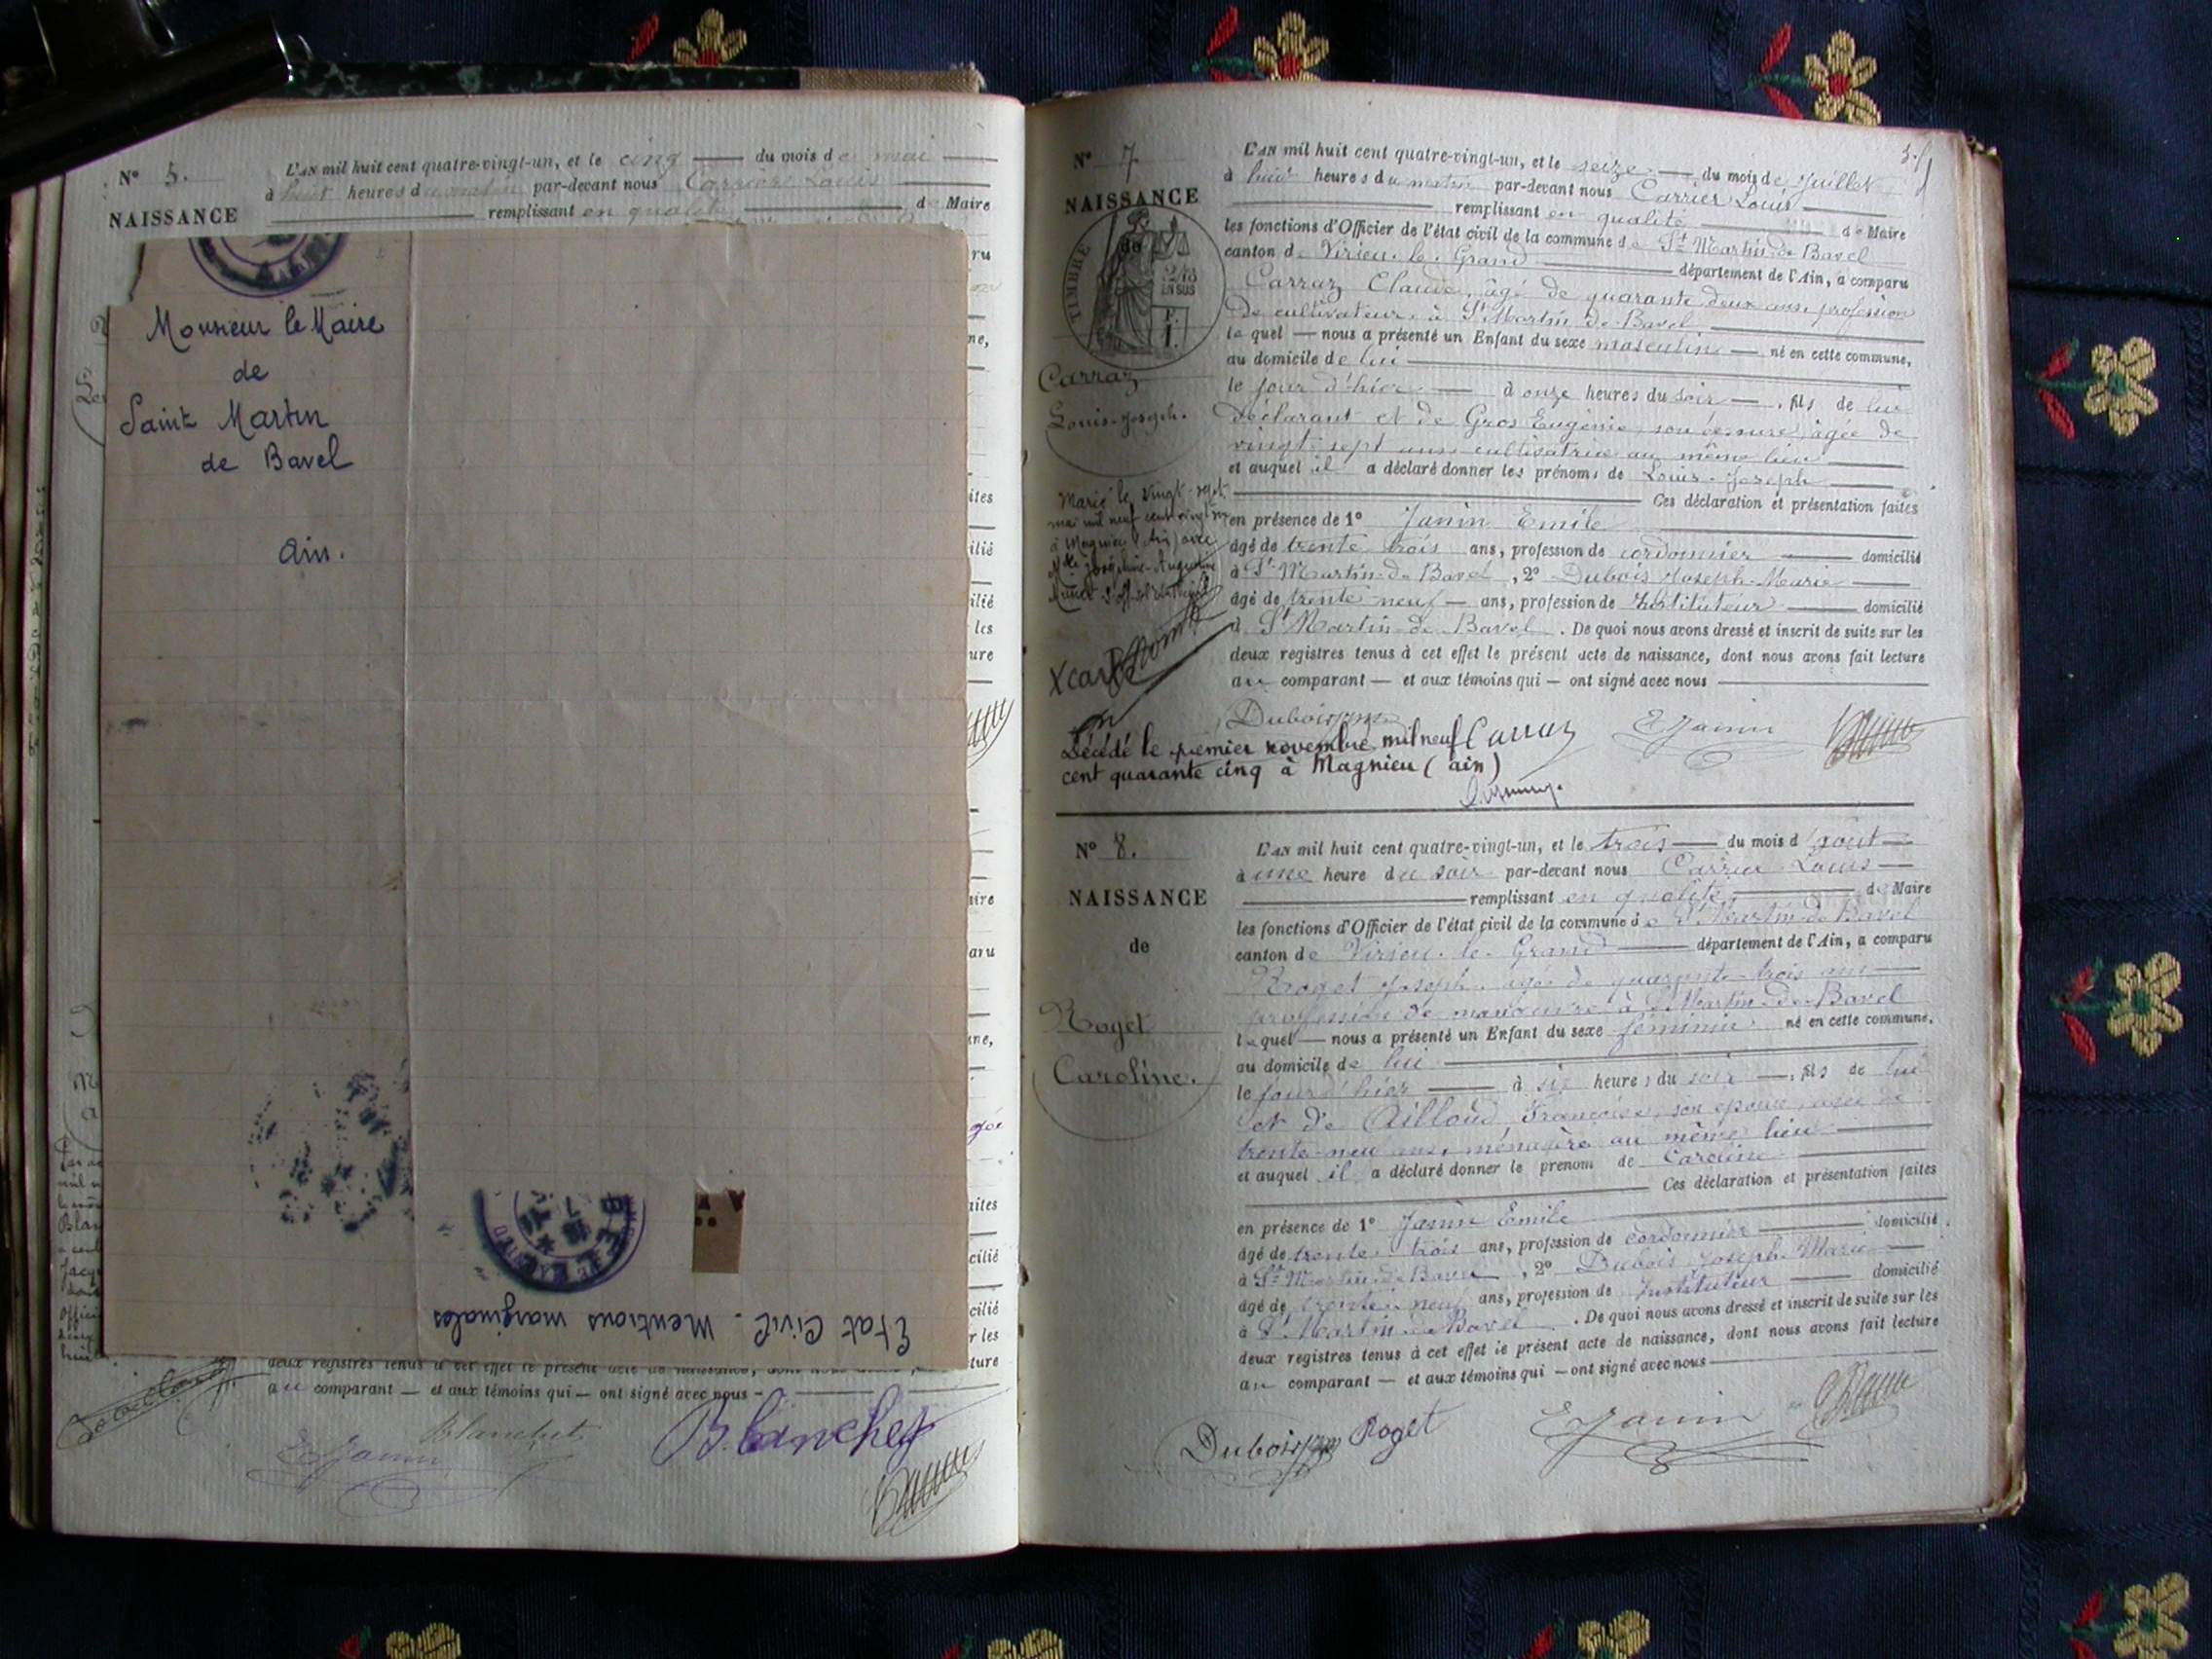 N° 5.
L'AN mil huit cent quatre-vingt-un, et le cinq du mois de mai
à huit heures du matin par-devant nous Carrier Louis
NAISSANCE
remplissant en qualité de Maire
Monsieur le Maire
de
Saint Martin
de Bavel
Ain.
Etat Civil - Mentions marginales
au comparant — et aux témoins qui — ont signé avec nous
E Janin
Blanchet
Blanchet
N° 7
NAISSANCE
de
TIMBRE
2/10
EN SUS
F.
1.
Carraz
Louis-Joseph.
Marié le vingt-sept
mai mil neuf cent
à Magnieu (Ain) avec
Joséphine-Augustine
L'AN mil huit cent quatre-vingt-un, et le seize du mois de Juillet
à huit heures du matin par-devant nous Carrier Louis
remplissant en qualité de Maire
les fonctions d'Officier de l'état civil de la commune de St Martin de Bavel
canton de Virieu-le-Grand département de l'Ain, a comparu
Carraz Claude, âgé de quarante deux ans, profession
de cultivateur, à St Martin de Bavel
lequel — nous a présenté un Enfant du sexe masculin — né en cette commune,
au domicile de lui
le jour d'hier à onze heures du soir —, fils de lui
déclarant et de Gros Eugénie, son épouse, âgée de
vingt-sept ans, cultivatrice au même lieu
et auquel il a déclaré donner les prénoms de Louis-Joseph
Ces déclaration et présentation faites
en présence de 1° Janin Emile
âgé de trente trois ans, profession de cordonnier domicilié
à St Martin-de Bavel, 2° Dubois Joseph-Marie
âgé de trente-neuf — ans, profession de Instituteur domicilié
à St Martin-de-Bavel. De quoi nous avons dressé et inscrit de suite sur les
deux registres tenus à cet effet le présent acte de naissance, dont nous avons fait lecture
au comparant — et aux témoins qui — ont signé avec nous
Dubois
Carraz
E Janin
Décédé le premier novembre mil neuf
cent quarante cinq à Magnieu (ain)
N° 8.
NAISSANCE
de
Roget
Caroline.
L'AN mil huit cent quatre-vingt-un, et le trois du mois d'Août
à une heure du soir par-devant nous Carrier Louis
remplissant en qualité de Maire
les fonctions d'Officier de l'état civil de la commune de St Martin-de Bavel
canton de Virieu-le-Grand département de l'Ain, a comparu
Roget Joseph, âgé de quarante-trois ans
profession de manœuvre à St Martin-de-Bavel
lequel — nous a présenté un Enfant du sexe féminin né en cette commune,
au domicile de lui
le jour d'hier à six heures du soir —, fils de lui
et de Ailloud Françoise, son épouse, âgée de
trente-neuf ans, ménagère au même lieu
et auquel il a déclaré donner le prénom de Caroline
Ces déclaration et présentation faites
en présence de 1° Janin Emile
âgé de trente-trois ans, profession de cordonnier domicilié
à St Martin de Bavel, 2° Dubois Joseph-Marie
âgé de trente-neuf ans, profession de Instituteur domicilié
à St Martin-de-Bavel. De quoi nous avons dressé et inscrit de suite sur les
deux registres tenus à cet effet le présent acte de naissance, dont nous avons fait lecture
au comparant — et aux témoins qui — ont signé avec nous
Dubois
Roget
E Janin